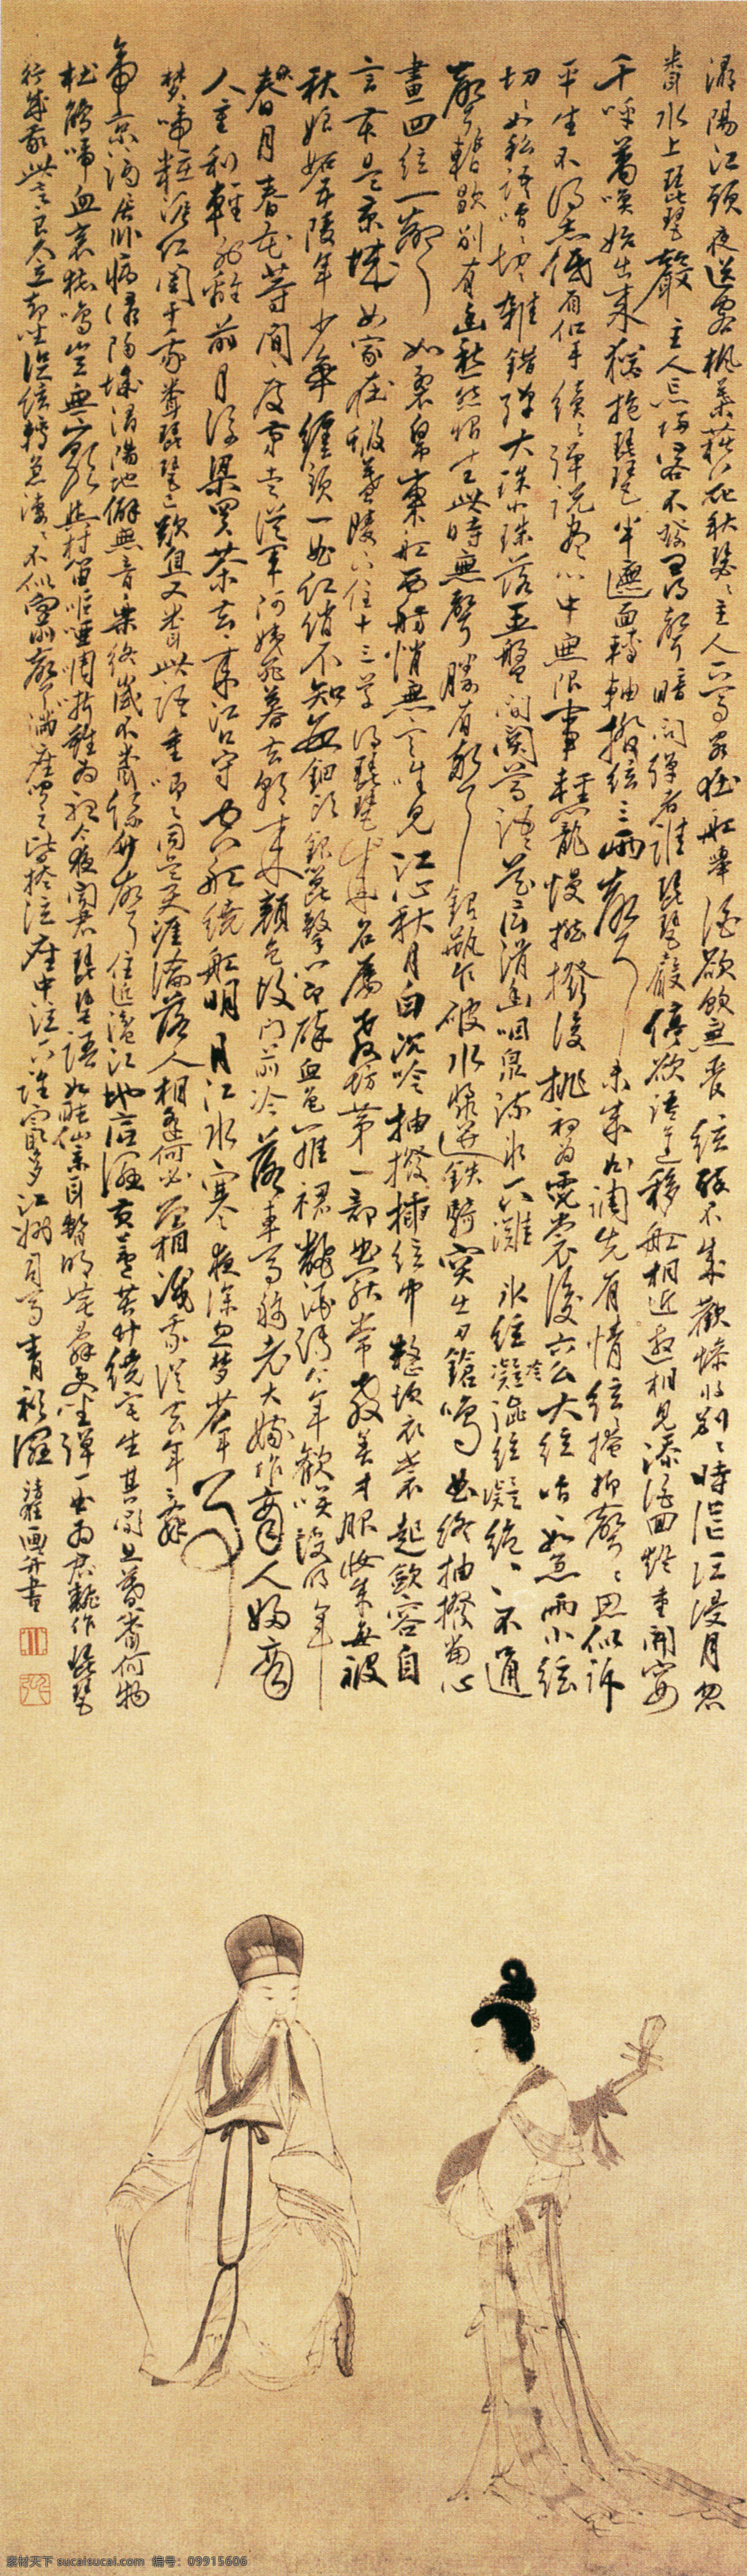 潯陽江頭夜送客楓葉荻花秋瑟瑟主人下馬客在船舉酒欲飲無管絃醉不成歡慘將別別時茫茫江浸月忽
聞水上琵琶聲主人忘歸客不發尋聲暗問彈者誰琵琶聲停欲語遲移船相近邀相見添酒回燈重開宴
千呼萬喚始出來猶抱琵琶半遮面轉軸撥絃三兩聲未成曲調先有情絃絃掩抑聲聲思似訴
平生不得志低眉信手續續彈說盡心中無限事輕攏慢撚撥復挑初為霓裳後六么大絃嘈嘈如急雨小絃
切切如私語嘈嘈切切雜錯彈大珠小珠落玉盤間關鶯語花底滑幽咽泉流冰下灘冰絃冷澀絃凝絕凝絕不通
聲暫歇別有幽愁暗恨生此時無聲勝有聲銀瓶乍破水漿迸鐵騎突出刀鎗鳴曲終抽撥當心
畫四絃一聲如裂帛東船西舫悄無言唯見江心秋月白沉吟抽撥插絃中整頓衣裳起斂容自
言本是京城女家在蝦蟇陵下住十三學得琵琶成名屬教坊第一部曲罷常教善才服妝成每被
秋娘妒五陵年少爭纏頭一曲紅綃不知數鈿頭銀篦擊節碎血色羅裙翻酒污今年歡笑復明年
秋月春花等閒度弟走從軍阿姨死暮去朝來顏色故門前冷落車馬稀老大嫁作商人婦商
人重利輕別離前月浮梁買茶去去來江口守空船繞船明月江水寒夜深忽夢少年事
夢啼粧淚紅闌干我聞琵琶已歎息又聞此語重唧唧同是天涯淪落人相逢何必曾相識我從去年辭
帝京謫居臥病潯陽城潯陽地僻無音樂終歲不聞絲竹聲住近湓江地低濕黃蘆苦竹繞宅生其間旦暮聞何物
杜鵑啼血哀猿鳴豈無山歌與村笛嘔啞嘲哳難為聽今夜聞君琵琶語如聽仙樂耳暫明莫辭更坐彈一曲為君翻作琵琶
行感我此言良久立却坐促絃絃轉急淒淒不似向前聲滿座聞之皆掩泣座中泣下誰最多江州司馬青衫濕 畫并書
素材天下 sucaisucai.com 编号: 09915606